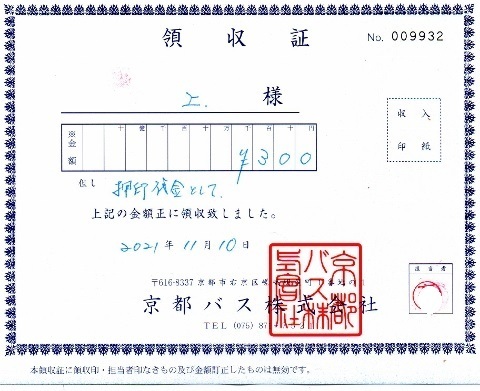 領収証
No. 009932
上. 様
収入
印紙
※金額
十億千百十万千百十円
¥300
但し 押印預金として
上記の金額正に領収致しました。
2021年11月10日
〒616-8337 京都市右京区嵯峨
京都バス株式会社
TEL (075) 87
担当者
本領収証に領収印・担当者印なきもの及び金額訂正したものは無効です。